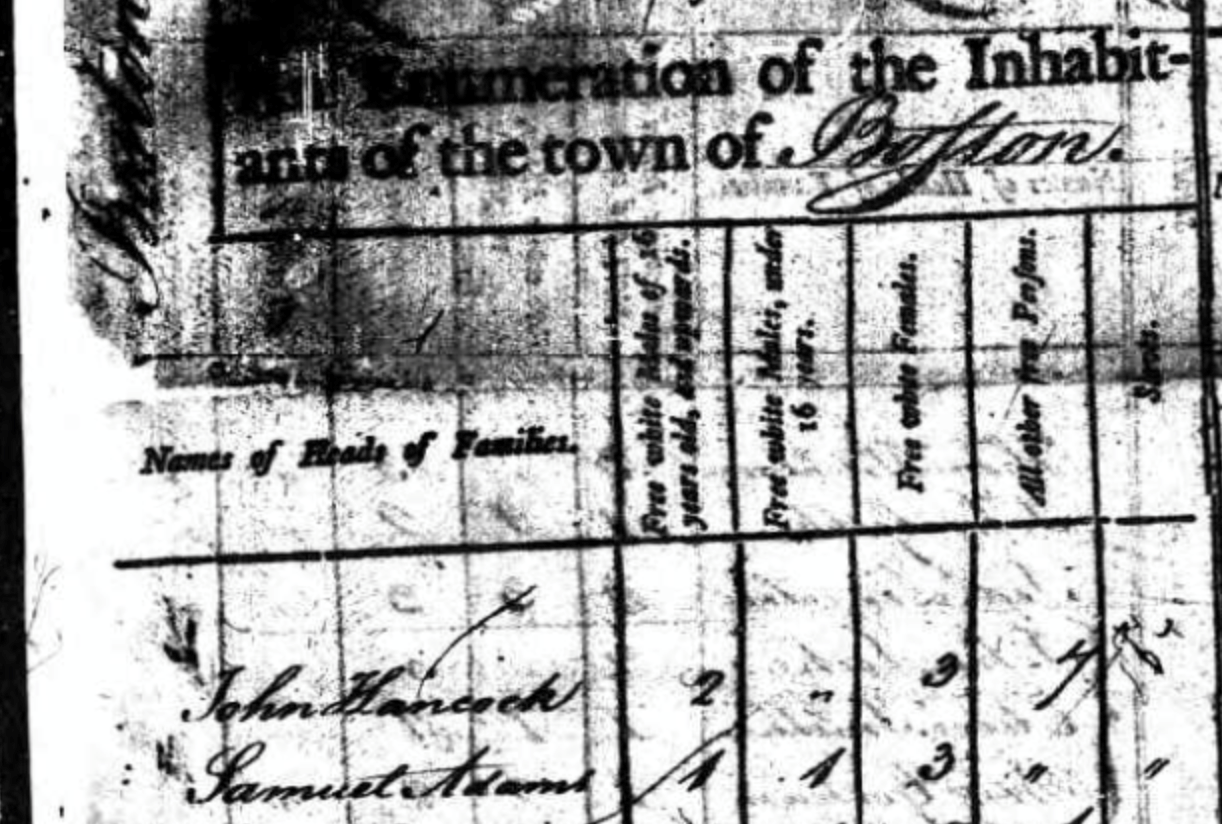 Enumeration of the Inhabit-
ants of the town of Boſton.
Names of Heads of Families.
Free white Males of 16
years old, and upwards.
Free white Males, under
16 years.
Free white Females.
All other free Perſons.
Slaves.
John Hancock 2 " 3 7
Samuel Adams 1 1 3 " "